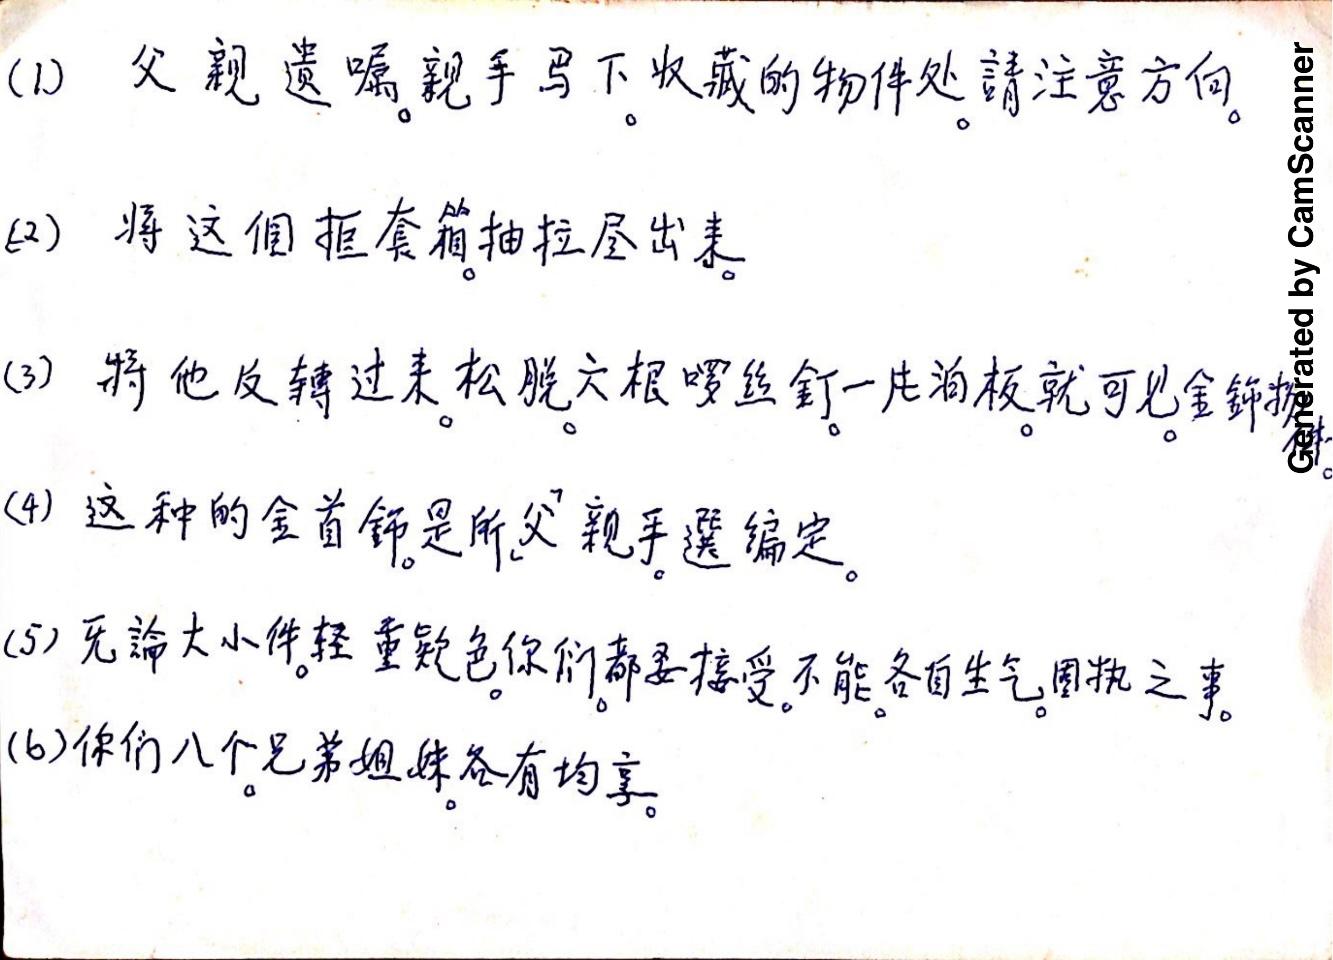 (1) 父親遗嘱。親手写下。收藏的物件处。請注意方向。
(2) 将这個柜套箱。抽拉尽出来。
(3) 将他反轉过来。松脱。六根啰丝釘。一片泊板。就可见。金飾物件。
(4) 这种的金首飾。是所「父」親手。選编定。
(5) 无論大小件。轻重欵色。你们。都要接受。不能。各自生气。固执之事。
(6) 你们八个。兄弟姐妹。各有均享。
Generated by CamScanner